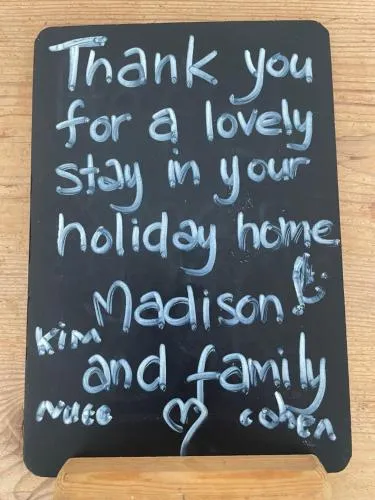 Thank you
for a lovely
stay in your
holiday home
Madison
Kim
and family